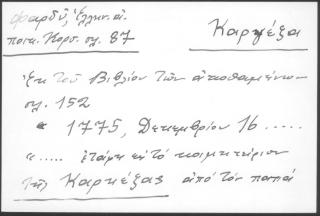 Φαρδύ, Ἑλλην. ἀ.
ποικ. Κορσ. σλ. 87
Καργέζα
Ἐκ τοῦ Βιβλίου τῶν ἀποθαμένων
σλ. 152
" 1775, Δεκεμβρίου 16 .....
" ..... ἐτάφη εἰς τό κοιμητήριον
τῆς Καργέζας ἀπό τόν παπά